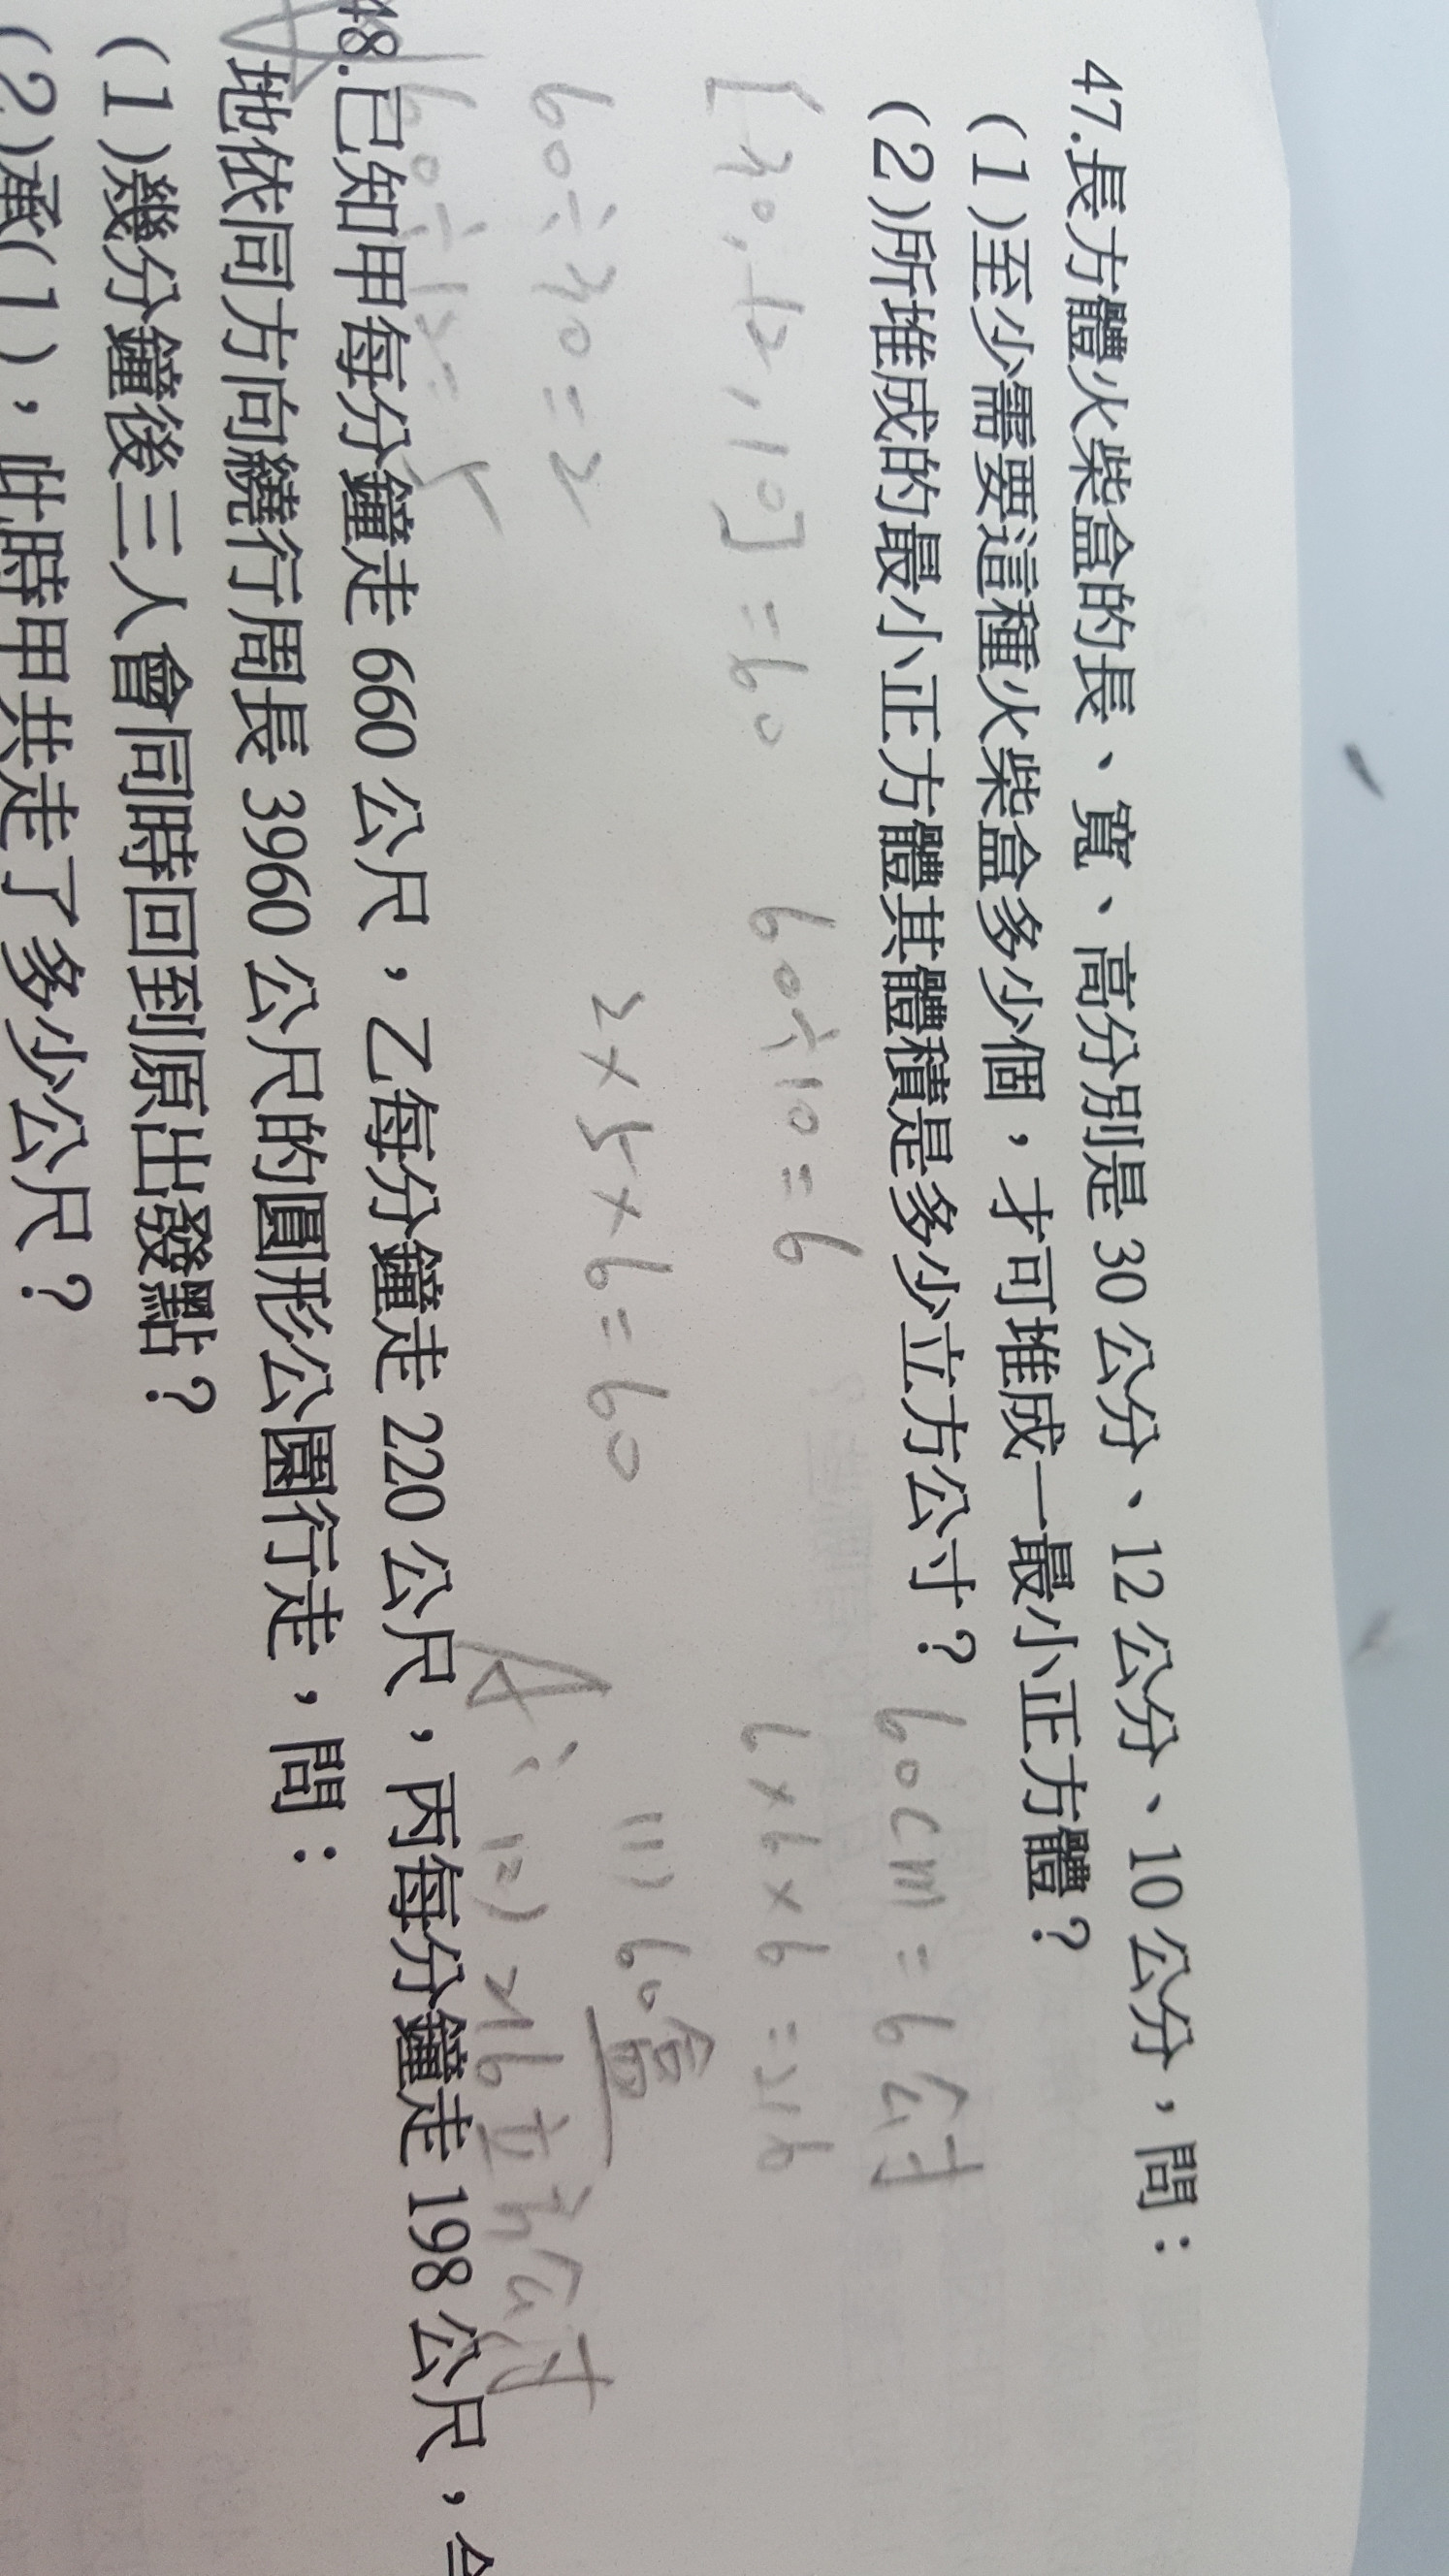 47.長方體火柴盒的長、寬、高分別是 30 公分、12 公分、10 公分，問：
(1)至少需要這種火柴盒多少個，才可堆成一最小正方體？
(2)所堆成的最小正方體其體積是多少立方公寸？ 60cm=6公寸
[30,12,10]=60 60÷10=6 6×6×6=216
60÷30=2 2×5×6=60 (1) 60盒
60÷12=5 A: (2) 216立方公寸
48.已知甲每分鐘走 660 公尺，乙每分鐘走 220 公尺，丙每分鐘走 198 公尺，
地依同方向繞行周長 3960 公尺的圓形公園行走，問：
(1)幾分鐘後三人會同時回到原出發點？
(2)承(1)，此時甲共走了多少公尺？